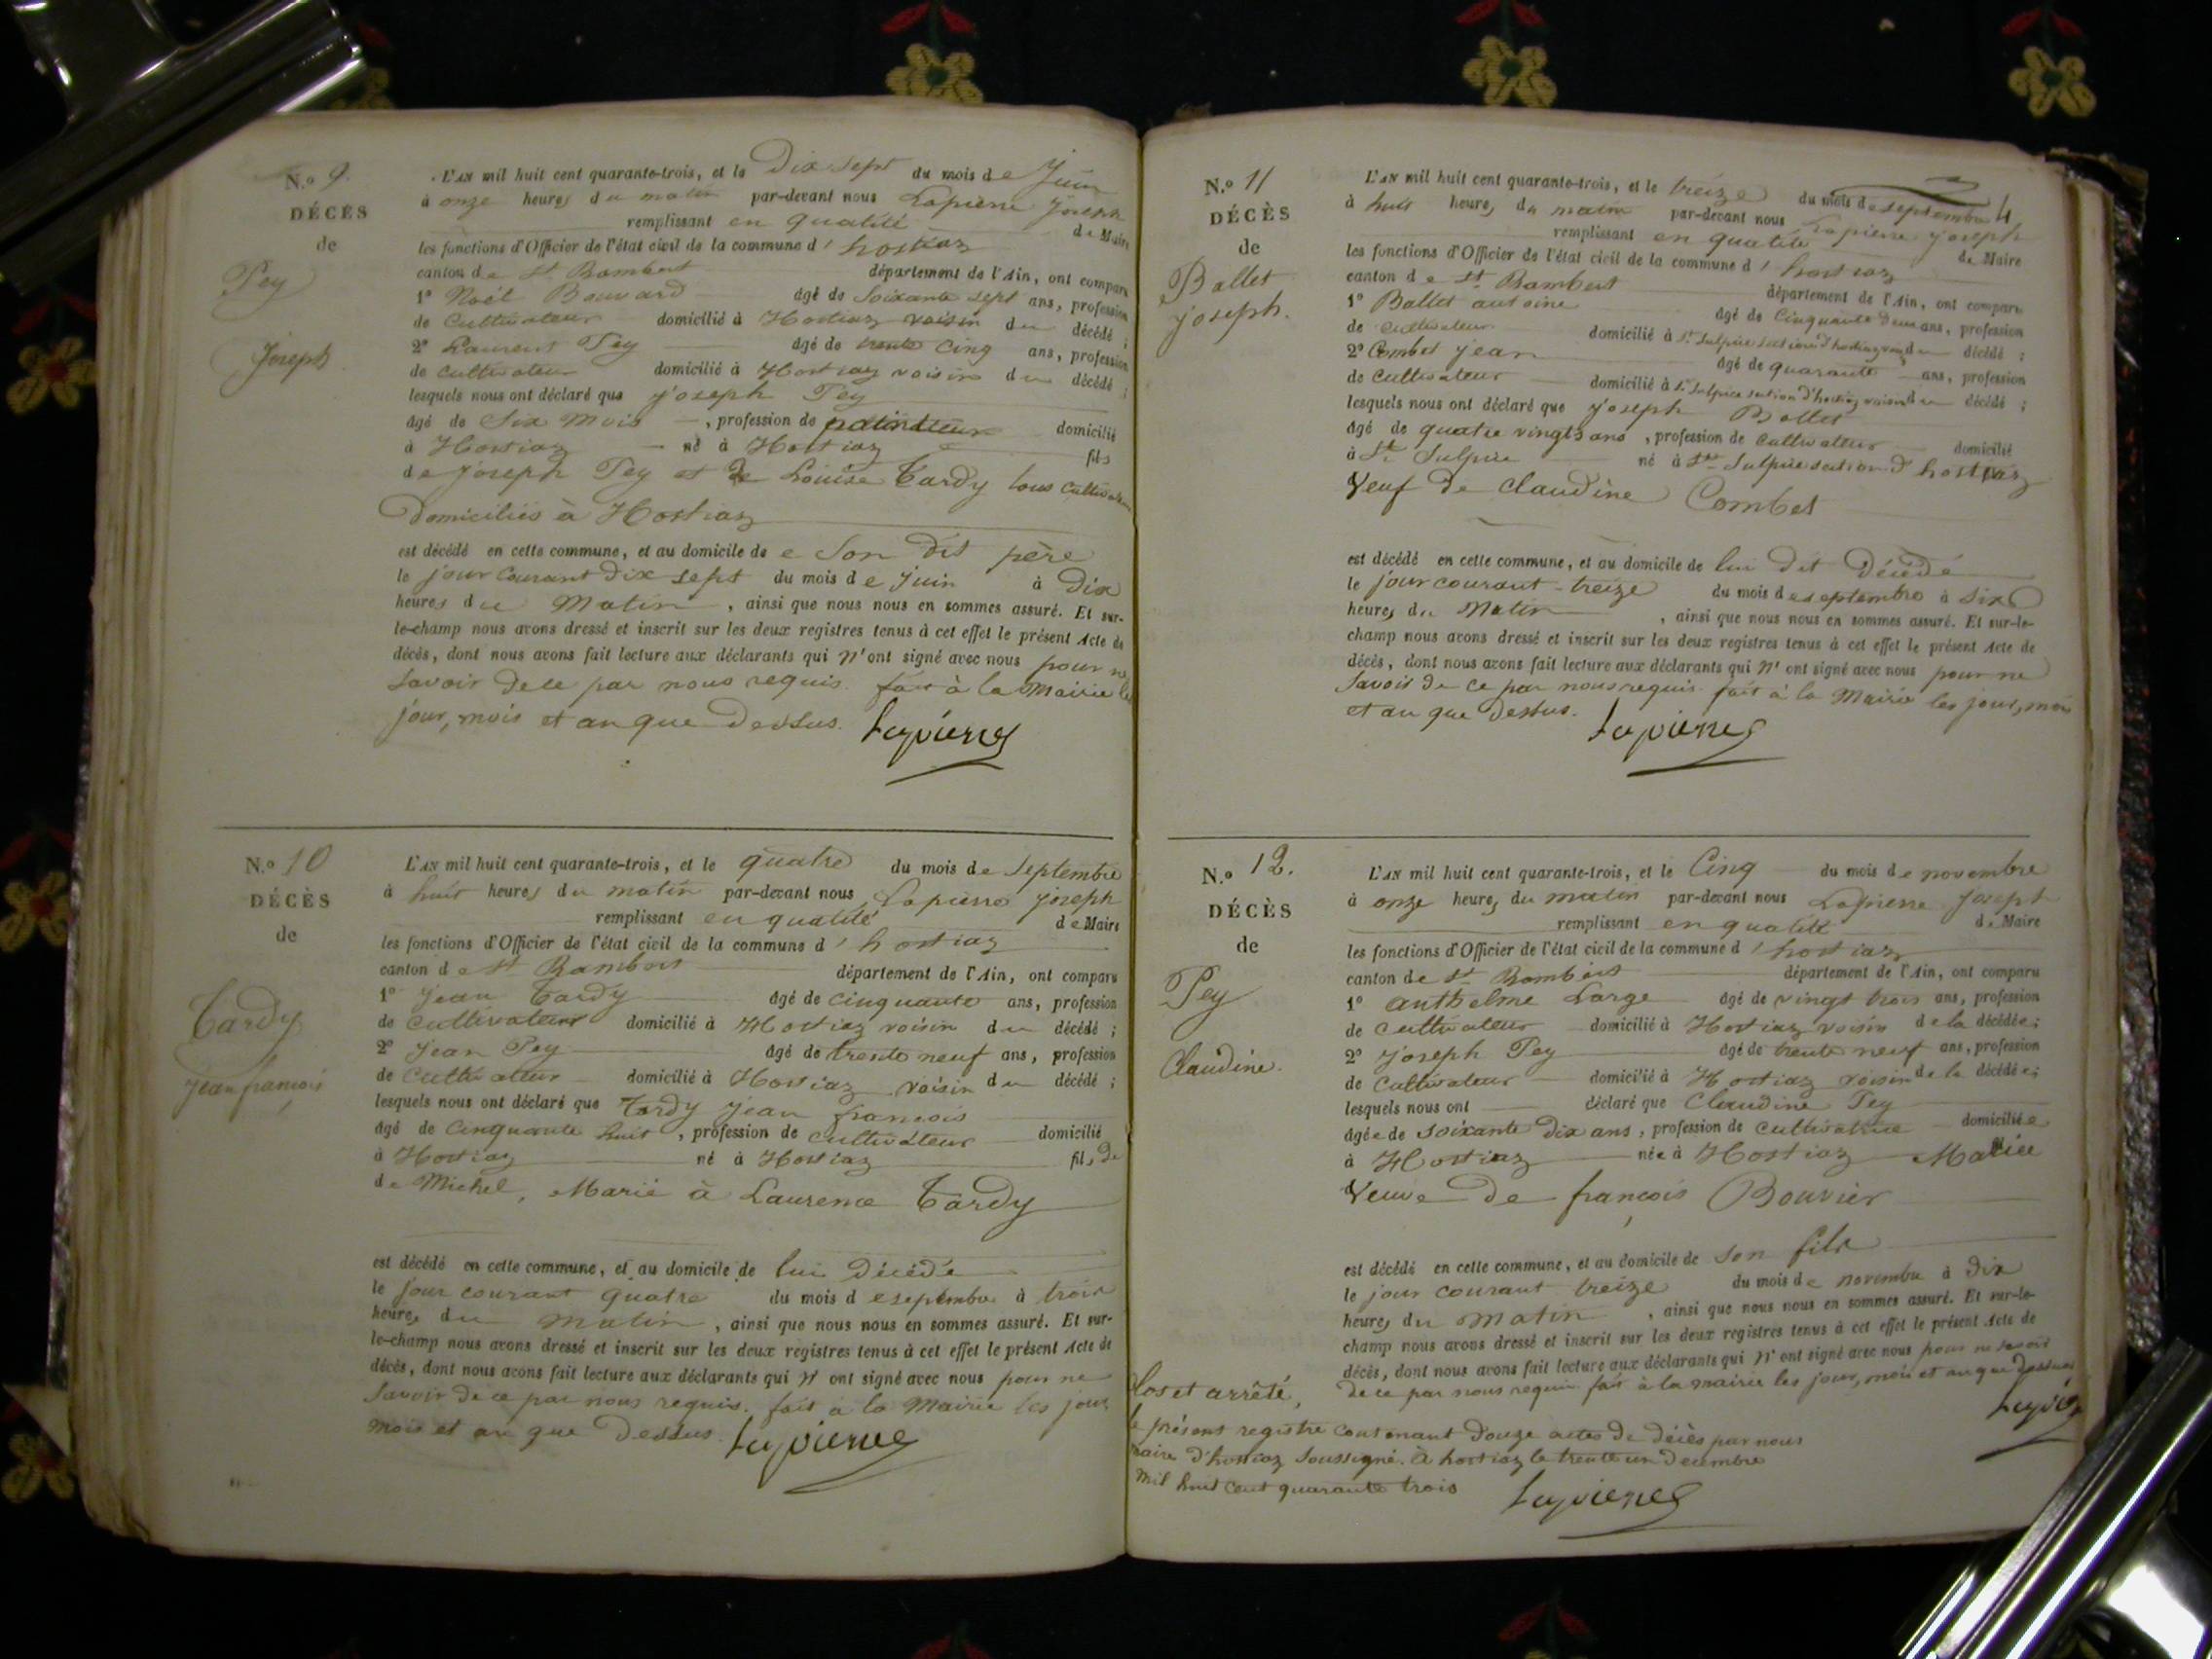 N.° 9.
DÉCÈS
de
Pey
Joseph
L'AN mil huit cent quarante-trois, et le Dix sept du mois de Juin
à onze heures du matin par-devant nous Lapierre Joseph
remplissant en qualité de Maire
les fonctions d'Officier de l'état civil de la commune d'hostiaz
canton de St Rambert département de l'Ain, ont comparu
1° Noël Bouvard âgé de Soixante sept ans, profession
de Cultivateur domicilié à Hostiaz voisin du décédé ;
2° Laurent Pey âgé de trente cinq ans, profession
de cultivateur domicilié à Hostiaz voisin du décédé ;
lesquels nous ont déclaré que joseph Pey
âgé de Six mois , profession de domicilié
à Hostiaz né à Hostiaz fils
de Joseph Pey et de Louise Tardy tous cultivateurs
Domiciliés à Hostiaz
est décédé en cette commune, et au domicile de e Son dit père
le jour courant dix sept du mois de juin à Dix
heures du Matin , ainsi que nous nous en sommes assuré. Et sur-
le-champ nous avons dressé et inscrit sur les deux registres tenus à cet effet le présent Acte de
décès, dont nous avons fait lecture aux déclarants qui n'ont signé avec nous pour ne
Savoir de ce par nous requis. fait à la Mairie les
jour, mois et an que Dessus. Lapierre
N.° 10
DÉCÈS
de
Tardy
jean françois
L'AN mil huit cent quarante-trois, et le quatre du mois de septembre
à huit heures du matin par-devant nous Lapierre joseph
remplissant en qualité de Maire
les fonctions d'Officier de l'état civil de la commune d'hostiaz
canton de St Rambert département de l'Ain, ont comparu
1° Jean Tardy âgé de cinquante ans, profession
de cultivateur domicilié à Hostiaz voisin du décédé ;
2° Jean Pey âgé de trente neuf ans, profession
de cultivateur domicilié à Hostiaz voisin du décédé ;
lesquels nous ont déclaré que Tardy jean françois
âgé de cinquante huit , profession de cultivateur domicilié
à Hostiaz né à Hostiaz fils de
de Michel, Marié à Laurence Tardy
est décédé en cette commune, et au domicile de lui Décédé
le jour courant quatre du mois de septembre à trois
heures du matin , ainsi que nous nous en sommes assuré. Et sur-
le-champ nous avons dressé et inscrit sur les deux registres tenus à cet effet le présent Acte de
décès, dont nous avons fait lecture aux déclarants qui n'ont signé avec nous pour ne
Savoir de ce par nous requis. fait à la Mairie les jour,
mois et an que Dessus. Lapierre
N.° 11
DÉCÈS
de
Ballet
joseph.
L'AN mil huit cent quarante-trois, et le treize du mois de septembre
à huit heures du matin par-devant nous Lapierre joseph
remplissant en qualité de Maire
les fonctions d'Officier de l'état civil de la commune d'hostiaz
canton de St Rambert département de l'Ain, ont comparu
1° Ballet antoine âgé de cinquante deux ans, profession
de cultivateur domicilié à St Sulpice section d'hostiaz voisin du décédé ;
2° Combet jean âgé de quarante ans, profession
de cultivateur domicilié à St Sulpice section d'hostiaz voisin du décédé ;
lesquels nous ont déclaré que joseph Ballet
âgé de quatre vingts ans , profession de cultivateur domicilié
à St Sulpice né à St Sulpice section d'hostiaz
Veuf de claudine Combet
est décédé en cette commune, et au domicile de lui dit Décédé
le jour courant treize du mois de septembre à six
heures du Matin , ainsi que nous nous en sommes assuré. Et sur-le-
champ nous avons dressé et inscrit sur les deux registres tenus à cet effet le présent Acte de
décès, dont nous avons fait lecture aux déclarants qui n'ont signé avec nous pour ne
Savoir de ce par nous requis. fait à la Mairie les jour, mois
et an que dessus. Lapierre
N.° 12.
DÉCÈS
de
Pey
Claudine.
L'AN mil huit cent quarante-trois, et le Cinq du mois de novembre
à onze heures du matin par-devant nous Lapierre Joseph
remplissant en qualité de Maire
les fonctions d'Officier de l'état civil de la commune d'hostiaz
canton de St Rambert département de l'Ain, ont comparu
1° anthelme Large âgé de vingt trois ans, profession
de cultivateur domicilié à Hostiaz voisin de la décédée ;
2° joseph Pey âgé de trente neuf ans, profession
de cultivateur domicilié à Hostiaz voisin de la décédée ;
lesquels nous ont déclaré que Claudine Pey
âgée de soixante dix ans , profession de cultivatrice domiciliée
à Hostiaz née à Hostiaz Mariée
Veuve de françois Bouvier
est décédé en cette commune, et au domicile de son fils
le jour courant treize du mois de novembre à dix
heures du matin , ainsi que nous nous en sommes assuré. Et sur-le-
champ nous avons dressé et inscrit sur les deux registres tenus à cet effet le présent Acte de
décès, dont nous avons fait lecture aux déclarants qui n'ont signé avec nous pour ne savoir
de ce par nous requis. fait à la mairie les jour, mois et an que dessus
Lapierre
Clos et arrêté,
le présent registre contenant douze actes de décès par nous
maire d'hostiaz soussigné. à hostiaz le trente un Décembre
mil huit cent quarante trois Lapierre